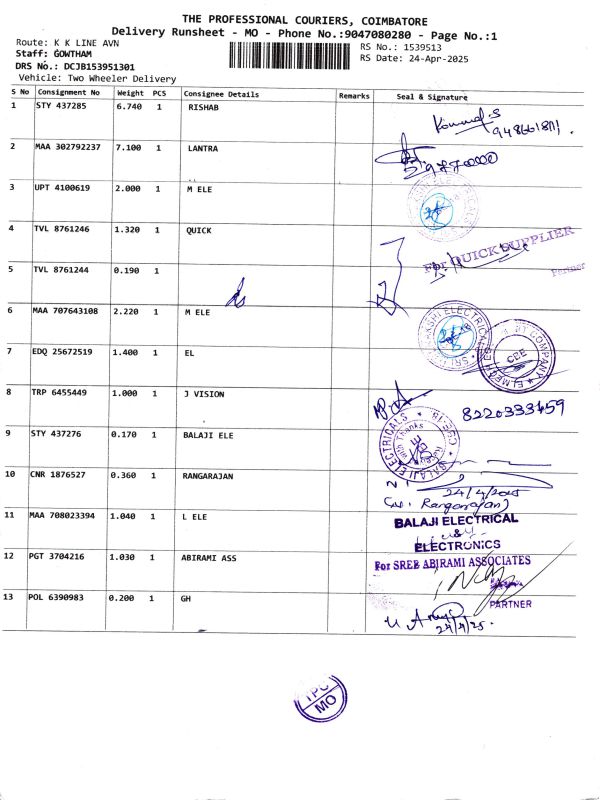 THE PROFESSIONAL COURIERS, COIMBATORE
Delivery Runsheet - MO - Phone No.:9047080280 - Page No.:1
Route: K K LINE AVN
RS No.: 1539513
Staff: GOWTHAM
RS Date: 24-Apr-2025
DRS No.: DCJB153951301
Vehicle: Two Wheeler Delivery
S No Consignment No Weight PCS Consignee Details Remarks Seal & Signature
1 STY 437285 6.740 1 RISHAB
2 MAA 302792237 7.100 1 LANTRA
3 UPT 4100619 2.000 1 M ELE
4 TVL 8761246 1.320 1 QUICK
For QUICK SUPPLIER
Partner
5 TVL 8761244 0.190 1
6 MAA 707643108 2.220 1 M ELE
7 EDQ 25672519 1.400 1 EL
CBE
8 TRP 6455449 1.000 1 J VISION
8220333459
9 STY 437276 0.170 1 BALAJI ELE
BALAJI ELECTRICALS
10 CNR 1876527 0.360 1 RANGARAJAN
24/4/2025
Rangarajan)
11 MAA 708023394 1.040 1 L ELE
BALAJI ELECTRICAL
&
ELECTRONICS
12 PGT 3704216 1.030 1 ABIRAMI ASS
For SREE ABIRAMI ASSOCIATES
PARTNER
13 POL 6390983 0.200 1 GH
24/4/25.
TPC
MO